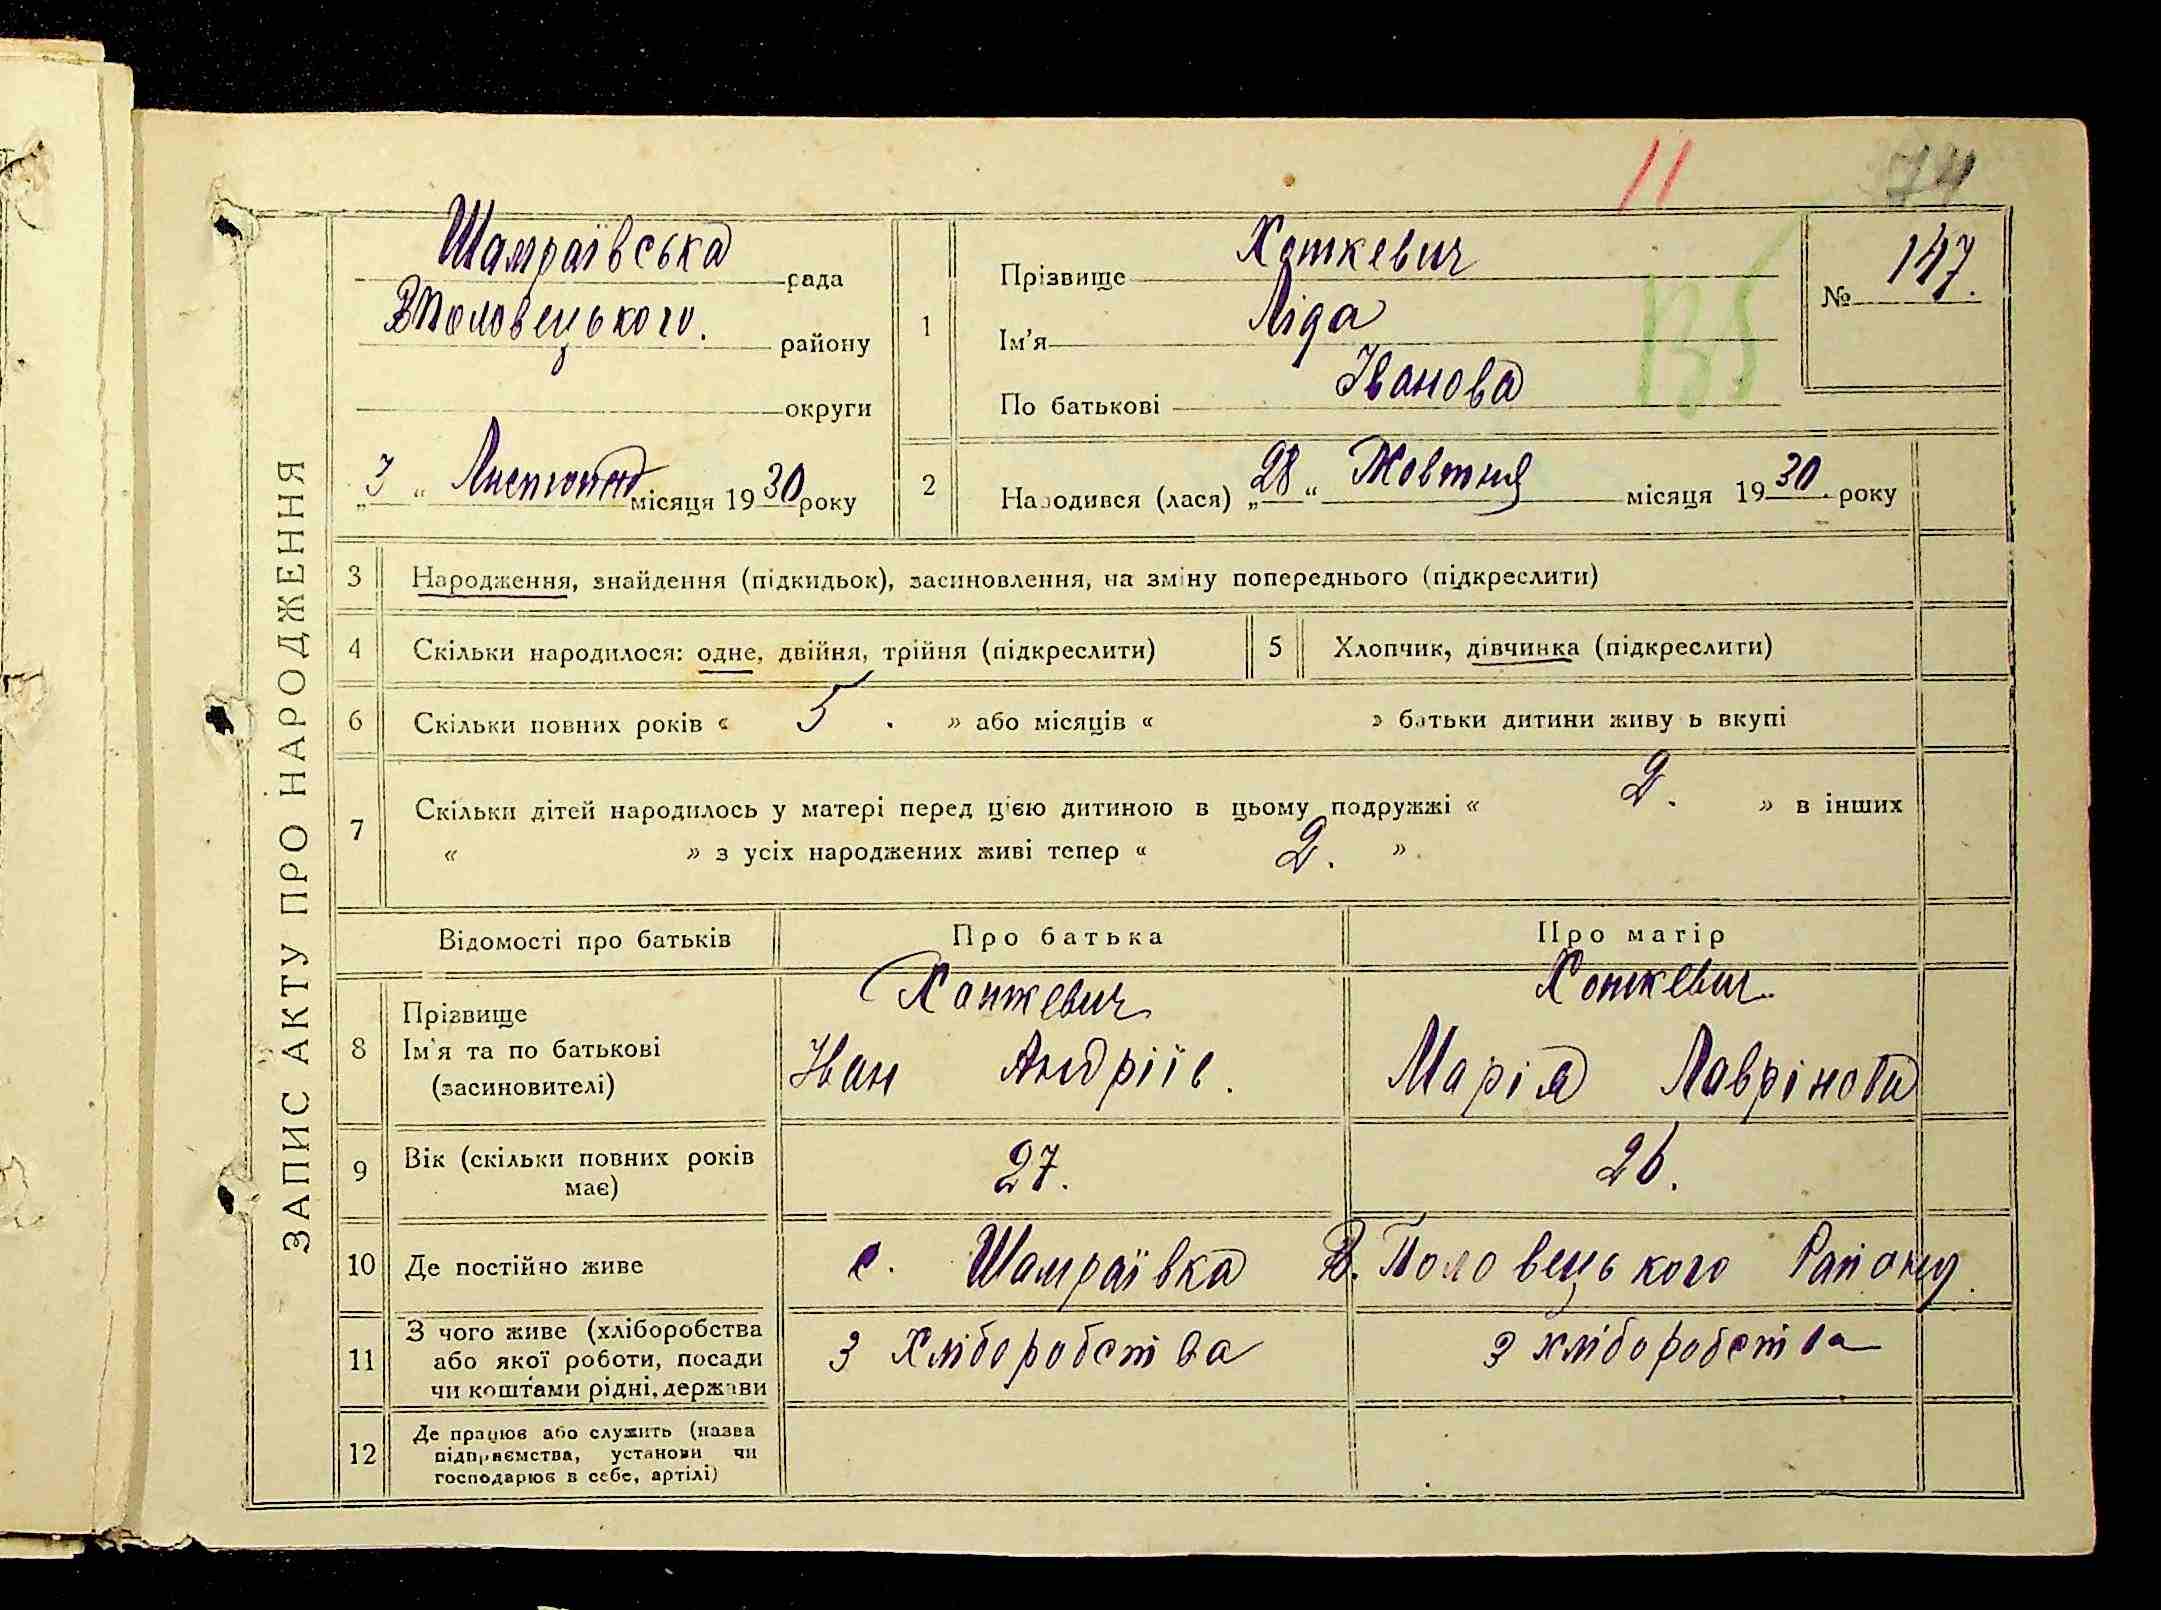 11 74
ЗАПИС АКТУ ПРО НАРОДЖЕННЯ
Шамраївська рада
ВПоловецького. району
округи
„3 “ Листопад місяця 1930 року
1
Прізвище Хоткевич
Ім'я Ліда
По батькові Іванова
№ 147.
2
Народився (лася) „28“ Жовтня місяця 1930. року
3 Народження, знайдення (підкидьок), засиновлення, на зміну попереднього (підкреслити)
4 Скільки народилося: одне, двійня, трійня (підкреслити)
5 Хлопчик, дівчинка (підкреслити)
6 Скільки повних років « 5 . » або місяців « » батьки дитини живу ь вкупі
7 Скільки дітей народилось у матері перед цією дитиною в цьому подружжі « 2. » в інших
« » з усіх народжених живі тепер « 2. ».
Відомості про батьків Про батька Про матір
8 Прізвище
Ім'я та по батькові
(засиновителі)
Хоткевич
Іван Андріїв.
Хоткевич.
Марія Лаврінова
9 Вік (скільки повних років
має)
27.
26.
10 Де постійно живе с. Шамраївка В. Половецького Району.
11 З чого живе (хліборобства
або якої роботи, посади
чи коштами рідні, держави
З Хліборобства
З хліборобства
12 Де працює або служить (назва
підприємства, установи чи
господарює в себе, артілі)